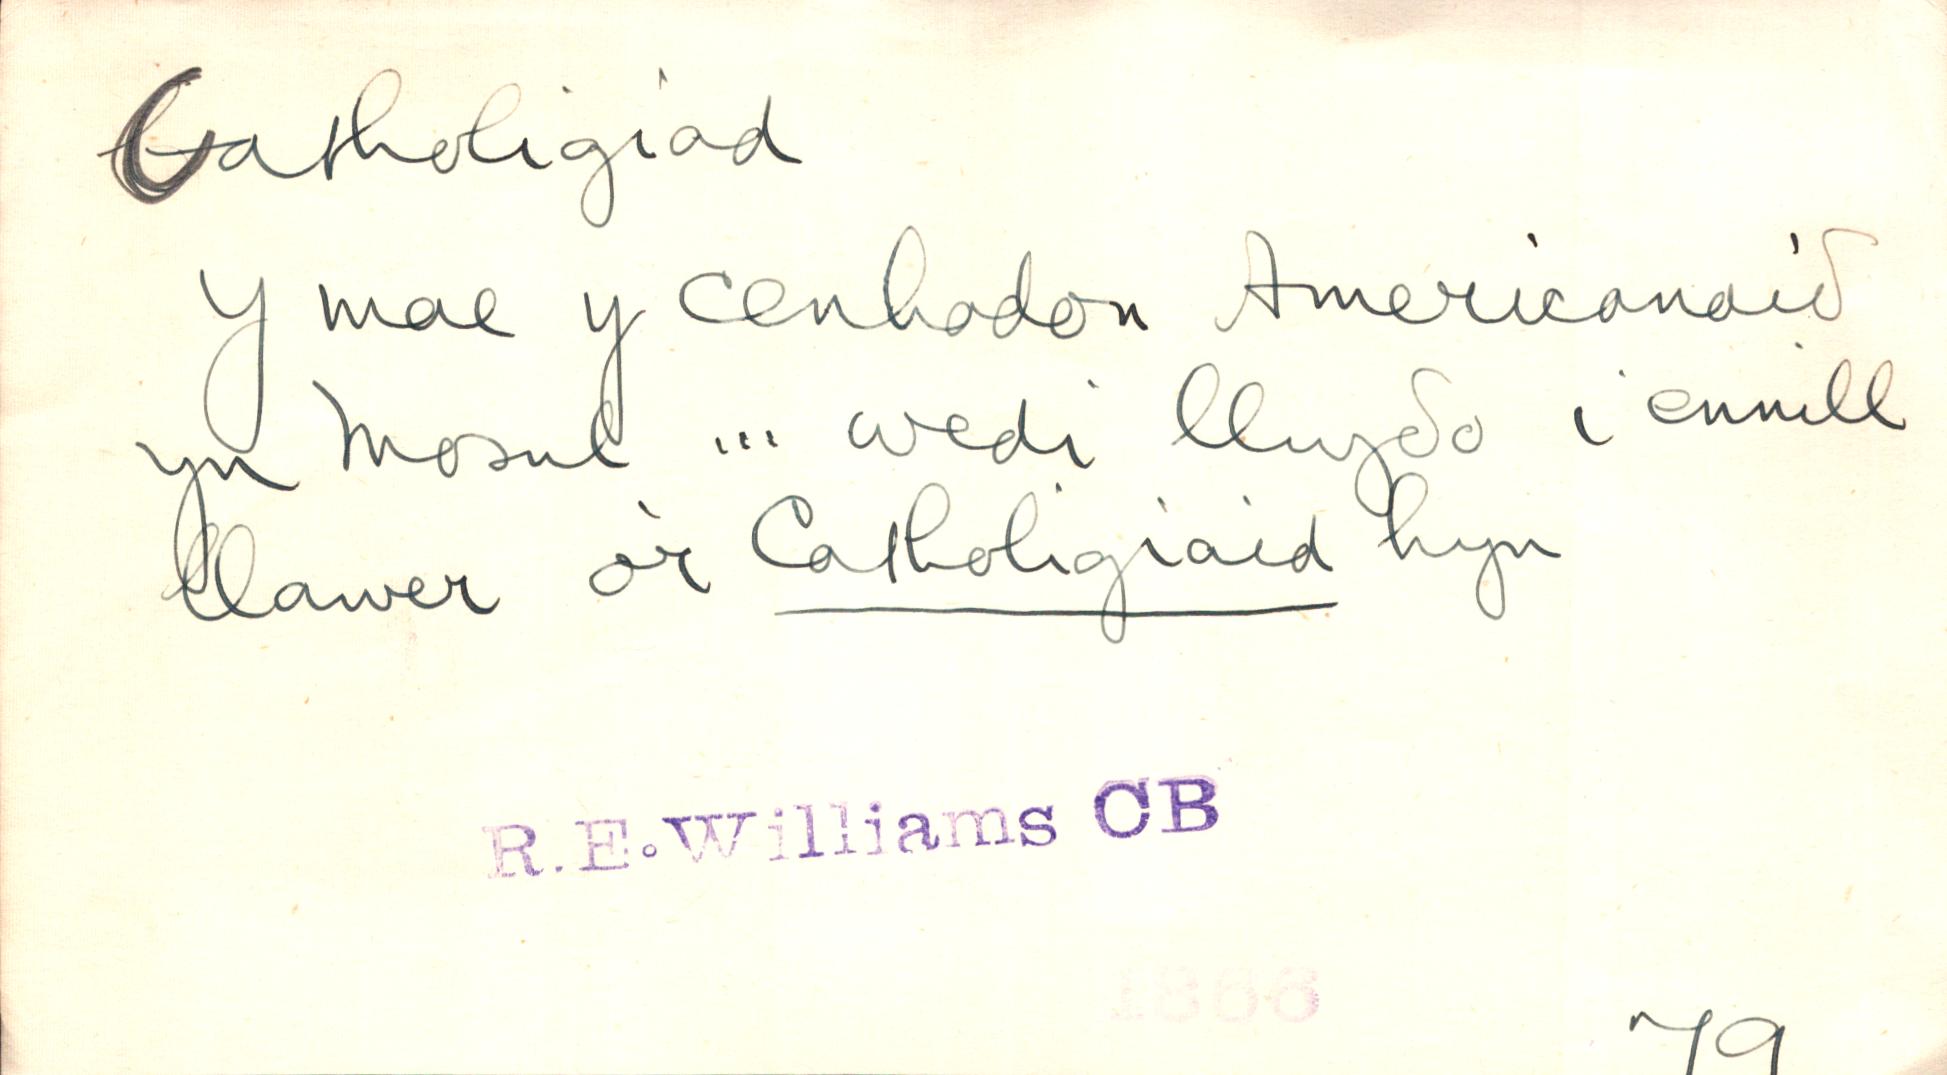 Catholigiad
Y mae y cenhadon Americanaiδ
yn Mosul ... wedi llwyδo i ennill
llawer o'r Catholigiaid hyn
R.E.Williams CB
79